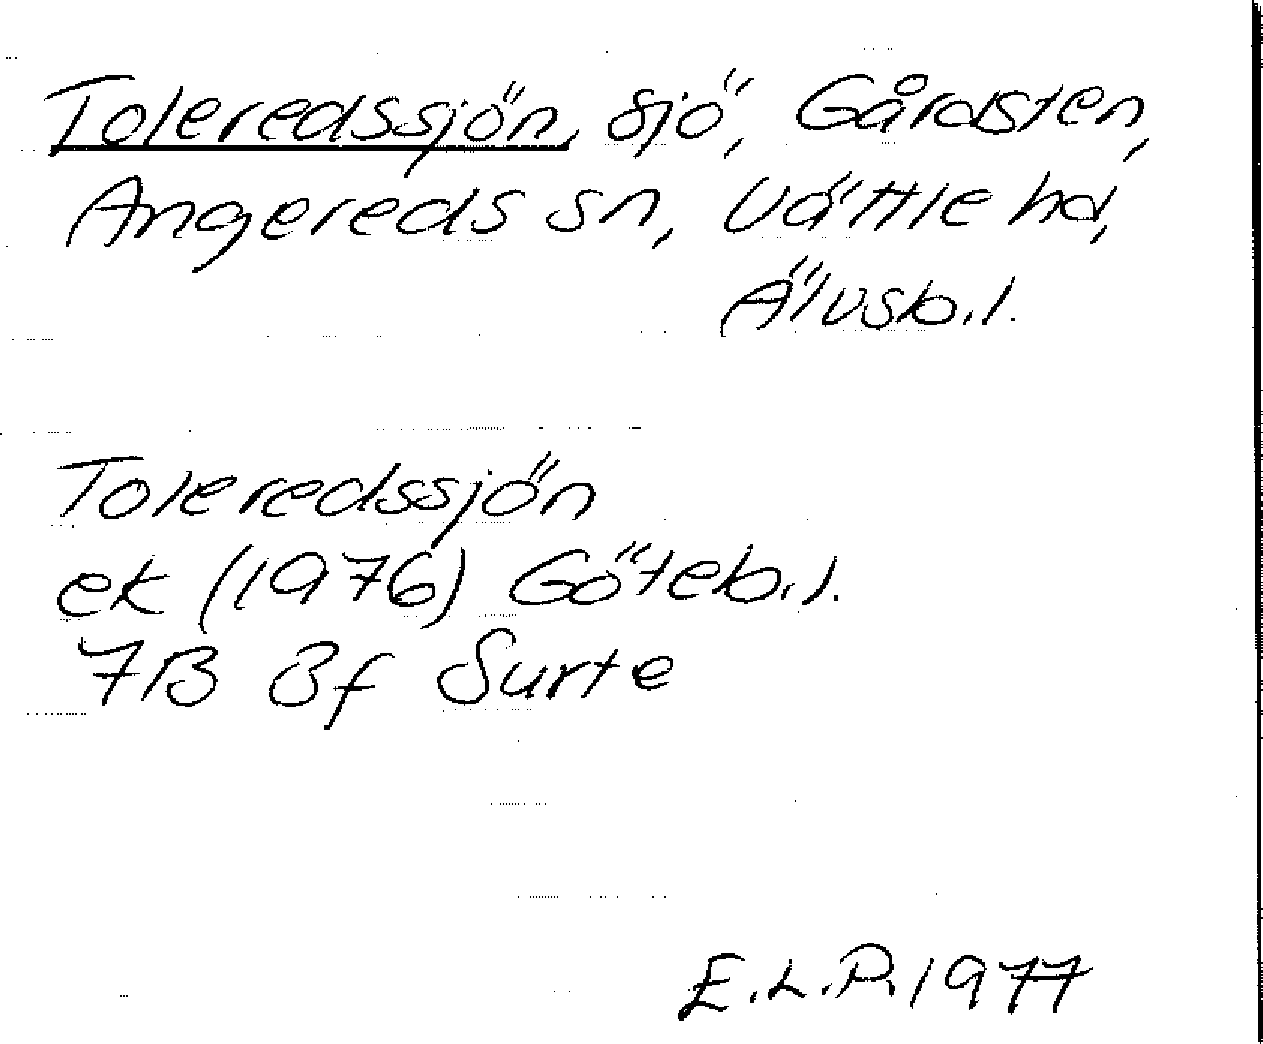 Toleredssjön, sjö, Gårdsten,
Angereds sn, Vättle hd,
Älvsb.l.
Toleredssjön
ek (1976) Göteb.l.
7B 3f Surte
E.L.P. 1977